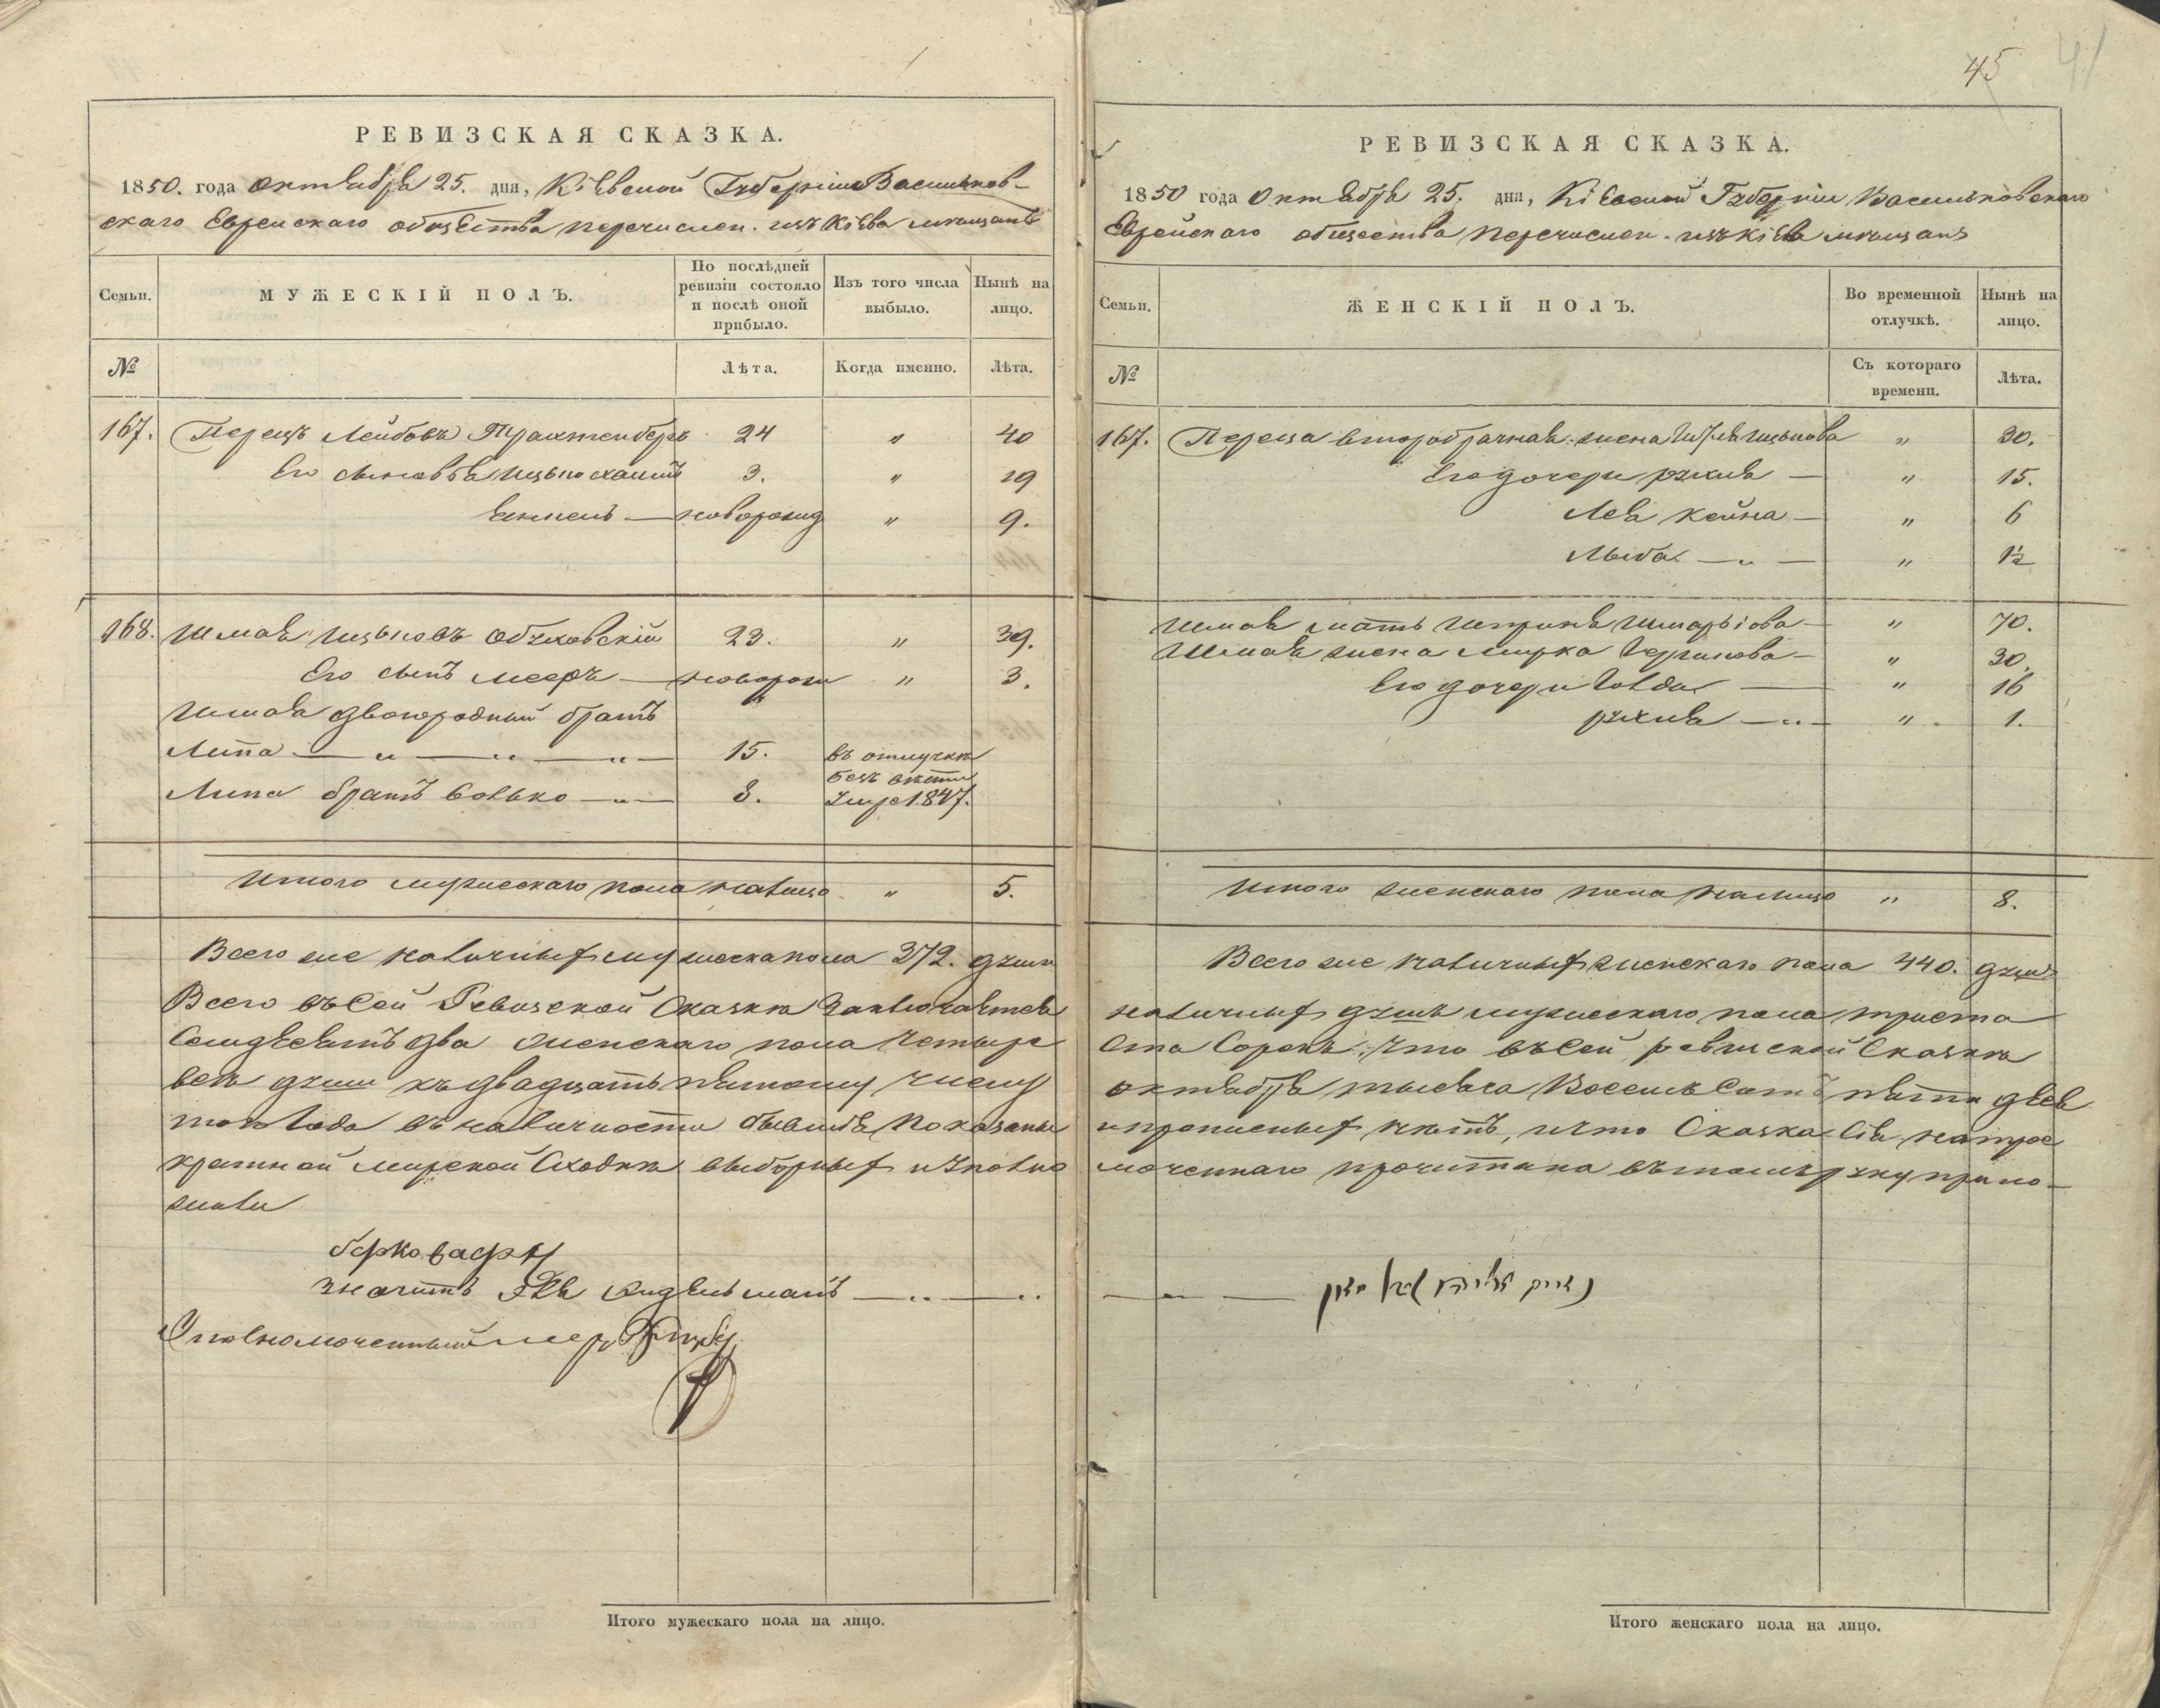 РЕВИЗСКАЯ СКАЗКА.
1850. года октября 25. дня, Кіевской Губерніи Васильков-
скаго Еврейскаго общества перечислен. изъ Кіева мѣщанъ
Семьи.
МУЖЕСКІЙ ПОЛЪ.
По послѣдней ревизіи состояло и послѣ оной прибыло.
Изъ того числа выбыло.
Нынѣ на лицо.
№
Лѣта.
Когда именно.
Лѣта.
167. Перецъ Лейбовъ Трахтенберъ 24 " 40
Его сыновья Ицько хаимъ 3. " 19
Янкель — новорожд " 9.
168. Шмая Ицьковъ Обуховскій 23. " 39.
Его сынъ Мееръ — новорож " 3.
Шмая двоюродный братъ
Липа — " — " — " — 15. въ отлучкѣ безъ вѣсти
Липа братъ Волько — " — 8. Умре 1847.
Итого мужескаго пола налицо " 5.
Всего же наличныхъ мужеска пола 372. души
Всего въ Сей Ревизской Сказкѣ Заключается
Семдесятъ два женскаго пола Четыре
всѣ души къ двадцать пятому числу
того Года въ наличности бывшія показаны
кратной мирской Сходкѣ выборныхъ и Уполно
жили
берко
значитъ Кидельманъ — " — "
Уполномоченный
Итого мужескаго пола на лицо.
45
41
РЕВИЗСКАЯ СКАЗКА.
1850 года Октября 25. дня, Кіевской Губерніи Васильковскаго
Еврейскаго общества перечислен. изъ Кіева мѣщанъ
Семьи.
ЖЕНСКІЙ ПОЛЪ.
Во временной отлучкѣ.
Нынѣ на лицо.
№
Съ котораго времени.
Лѣта.
167. Переца второбрачная жена Ицькова " 30.
Его дочери рухля — " 15.
Лея Кейна — " 6
Лыба — " — " 1½
Шмая мать Шприня Шмарьіова — " 70.
Шмая жена Мирка — " 30.
Его дочери Голда — " 16
рухля — " — " 1.
Итого женскаго пола налицо " 8.
Всего же наличныхъ женскаго пола 440. душъ
наличныхъ душъ мужескаго пола триста
Ста Сорокъ. Что въ Сей ревизской Сказкѣ
октября тысяча Восемь Сотъ пятьдеся
и прописныхъ нѣтъ, и что Сказка Сія на трое
моченнаго прочитана въ томъ руку прило-
Итого женскаго пола на лицо.